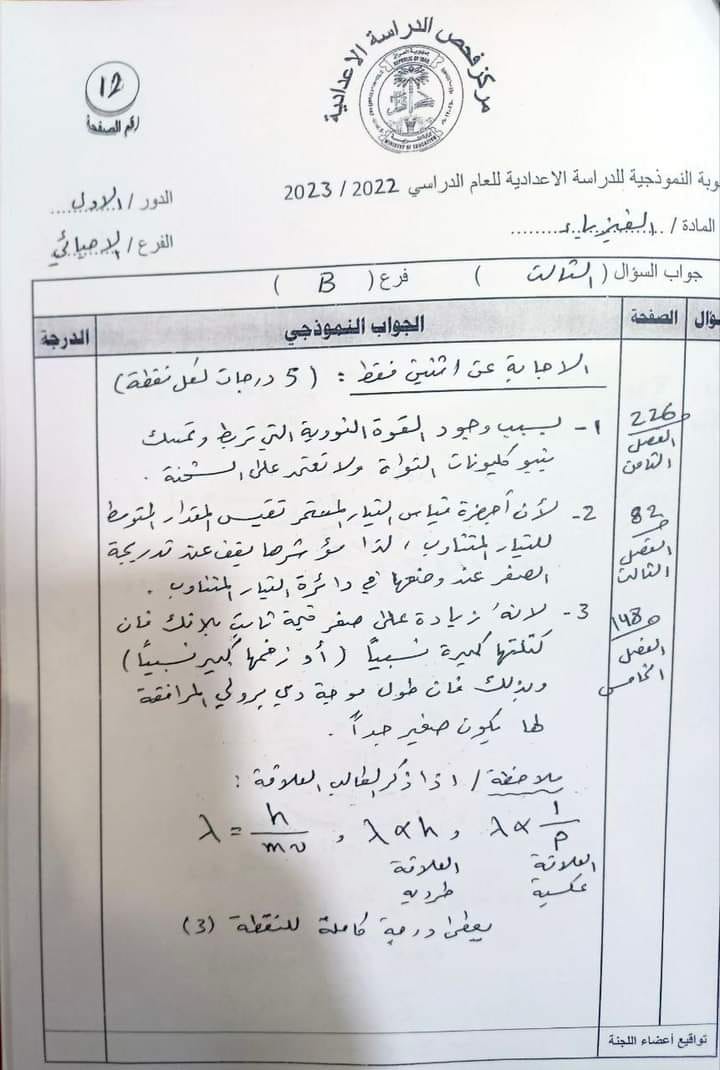 مركز فحص الدراسة الاعدادية
جمهورية العراق
REPUBLIC OF IRAQ
MINISTRY OF EDUCATION
12
رقم الصفحة
وبة النموذجية للدراسة الاعدادية للعام الدراسي 2022 / 2023
الدور / الاول
المادة / الفيزياء
الفرع / الاحيائي
جواب السؤال ( الثالث ) فرع ( B )
ؤال الصفحة الجواب النموذجي الدرجة
الاجابة عن اثنتين فقط : ( 5 درجات لكل نقطة )
226
الفصل
الثامن
1- بسبب وجود القوة النووية التي تربط وتمسك
بنيوكليونات النواة ولا تعتمد على الشحنة .
82
الفصل
الثالث
2- لأن أجهزة قياس التيار المستمر تقيس المقدار المتوسط
للتيار المتناوب ، لذا مؤشرها يقف عند تدريجة
الصفر عند وضعها في دائرة التيار المتناوب .
148
الفصل
الخامس
3- لانه زيادة على صغر قيمة ثابت بلانك فان
كتلتها كبيرة نسبياً ( أو زخمها كبير نسبياً )
وبذلك فان طول موجة دي برولي المرافقة
لها يكون صغير جداً .
ملاحظة / اذا ذكر الطالب العلاقة :
λ = h/mv , λ ∝ h , λ ∝ 1/P
العلاقة العلاقة
طردية عكسية
يعطى درجة كاملة للنقطة (3)
تواقيع أعضاء اللجنة